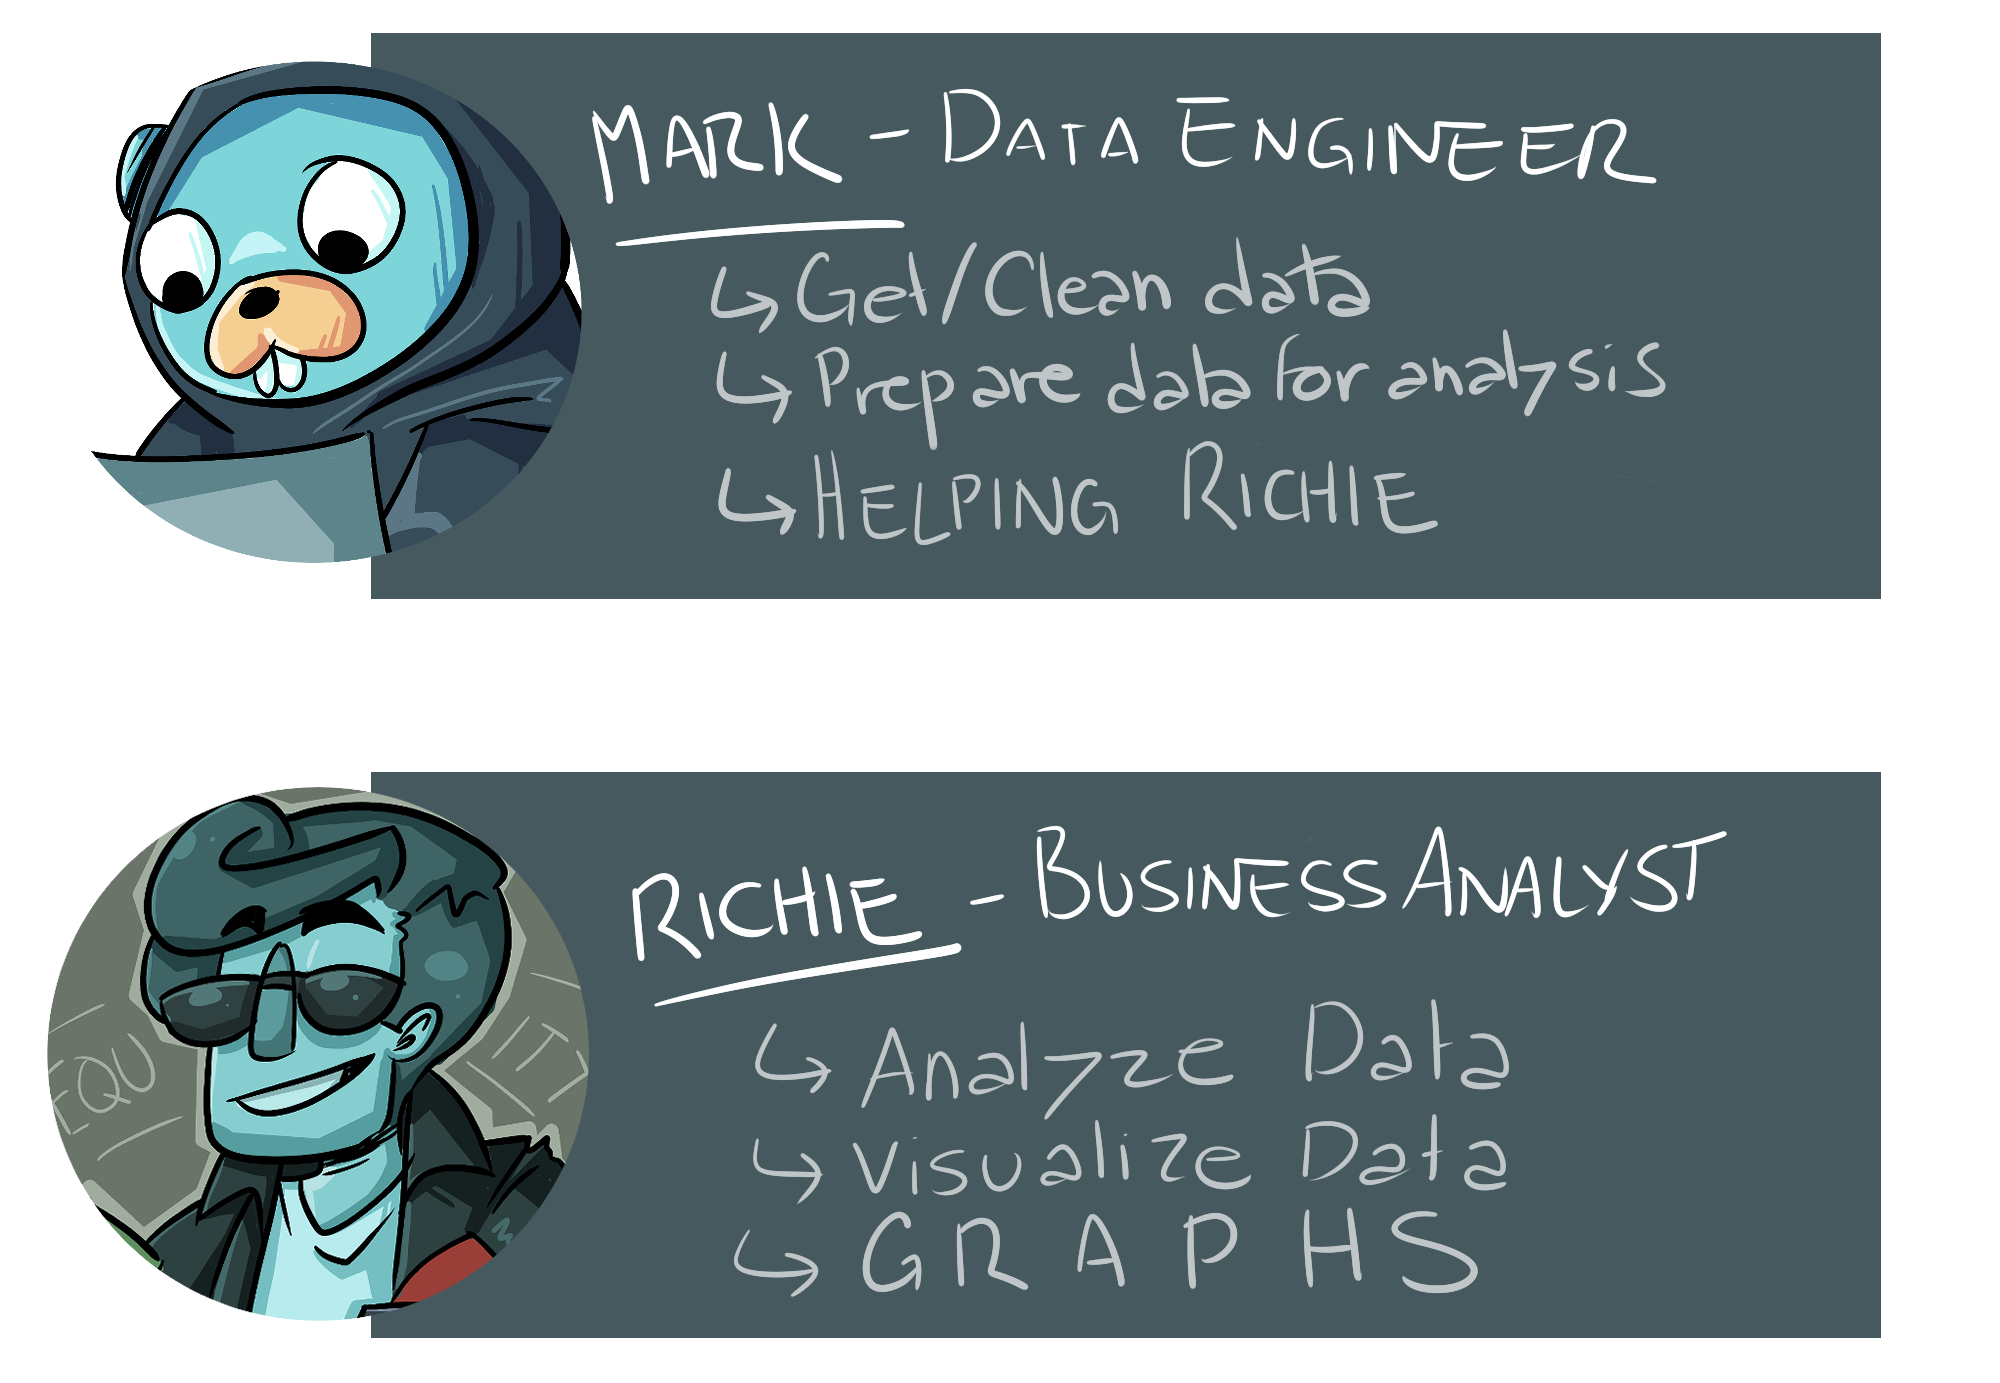 MARK - DATA ENGINEER
↳ Get/Clean data
↳ Prepare data for analysis
↳ HELPING RICHIE
RICHIE - BUSINESS ANALYST
↳ Analyze Data
↳ Visualize Data
↳ G R A P H S
EQU
ITY